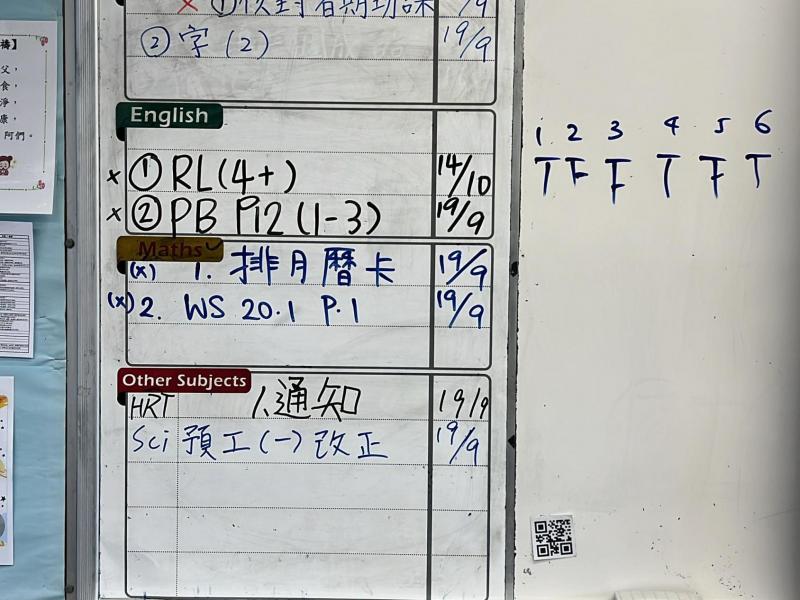 × ① 核對君期功課 /9
② 字(2) 19/9
English
× ① RL(4+) 14/10
× ② PB P.12(1-3) 19/9
Maths
(x) 1. 排月曆卡 19/9
(x) 2. WS 20.1 P.1 19/9
Other Subjects
HRT 1、通知 19/9
Sci 預工(一)改正 19/9
1 2 3 4 5 6
T F F T F T
禱】
父,
食,
淨,
康,
阿們。